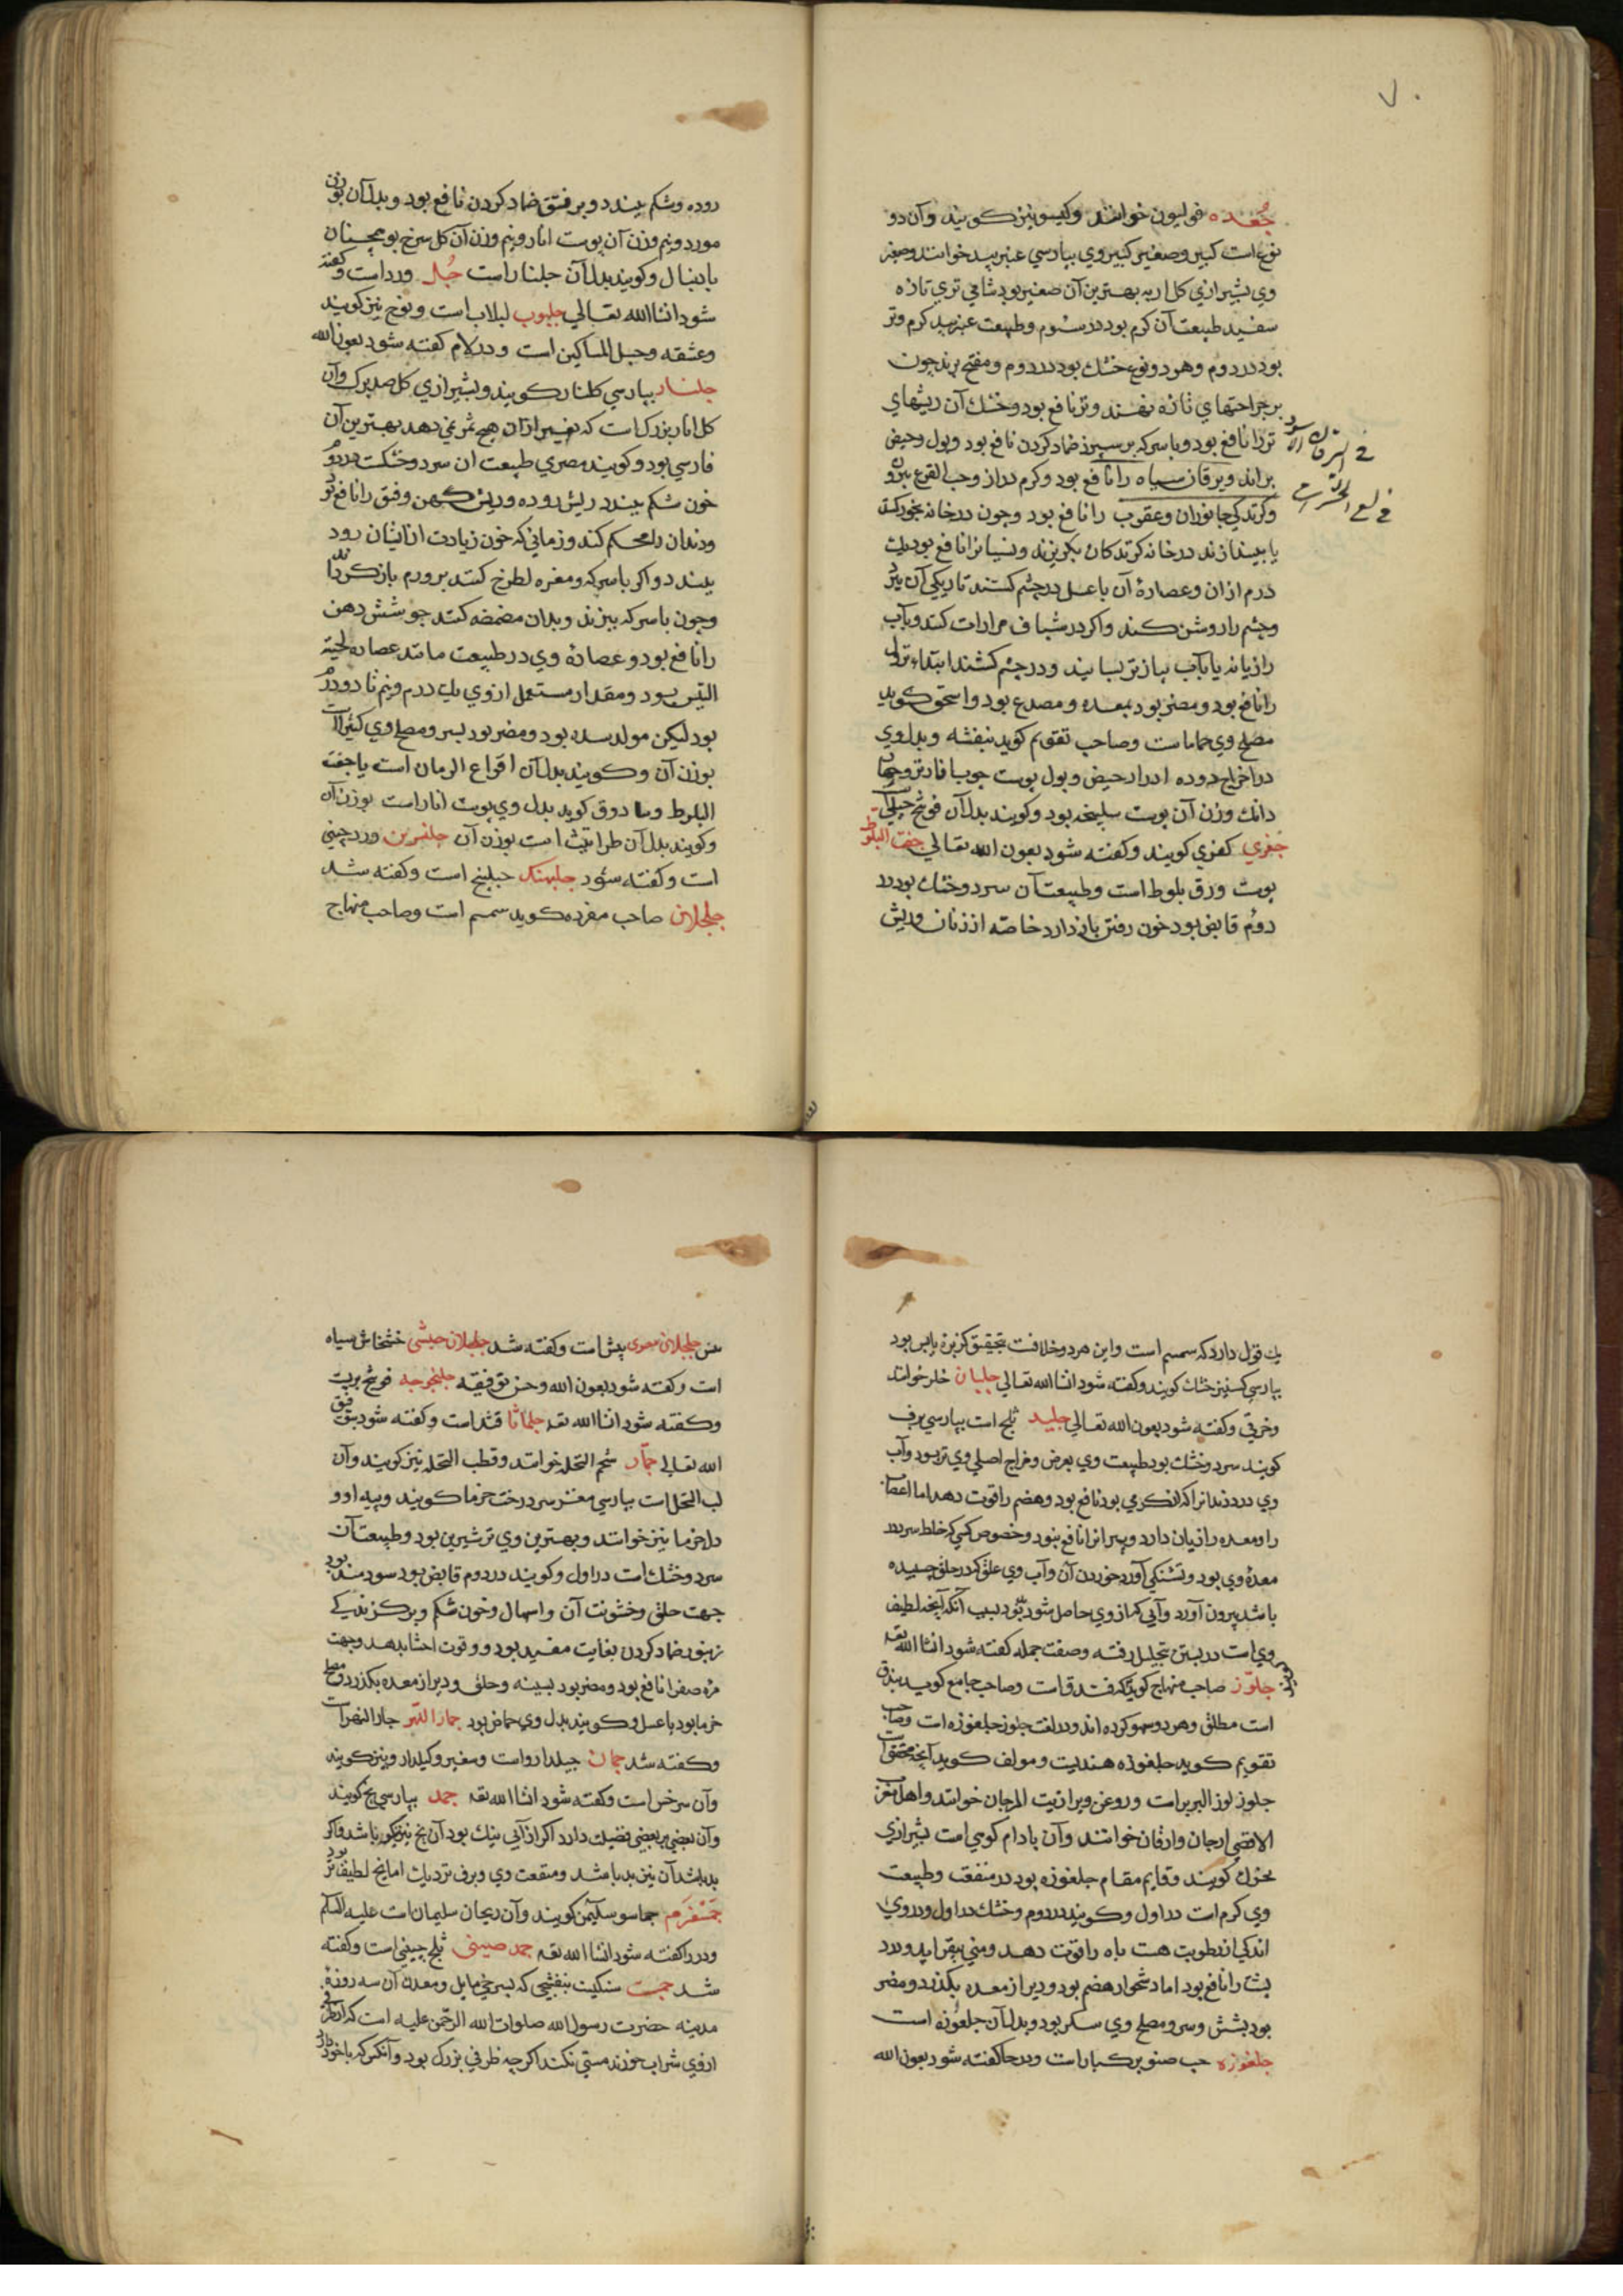 ٧٠
جُعْده فولیون خوانند وکیسو نیز کویند وآن دو
نوع است کبیر وصغیر کبیروی بپارسی عنبربید خوانند وصغیر
وی بشیرازی کل اربه بهترین آن صغیر بود شامی تری تازه
سفید طبیعت آن کرم بود در سوم وطبیعت عنبربید کرم وتر
بود در دوم وهر دو نوع خشک بود در دوم ومفتح بود چون
بر جراحتهای تازه نهند وتر نافع بود وخشک آن ریشهای
تر را نافع بود وبا سرکه بر سپرز ضماد کردن نافع بود وبول وحیض
براند ویرقان سیاه را نافع بود وکرم دراز وحب القرع بیرون
وکزندکی جانوران وعقرب را نافع بود وچون در خانه بخور کنند
یا بیندازند در خانه کزندکان بکریزند ونسیان را نافع بود یک
درم ازان وعصارهٔ آن با عسل در چشم کشند تاریکی آن ببرد
وچشم را روشن کند واکر در شیاف مرارات کنند وبآب
رازیانه یا بآب پیاز تر بسایند ودر چشم کشند ابتداء نزول
را نافع بود ومضر بود بمعده ومصدع بود واسحق کوید
مصلح وی حماماست وصاحب تقویم کوید بنفشه وبدل وی
در اخراج دوده ادرار حیض وبول پوست چوب انار تر وچهار
دانک وزن آن پوست سلیخه بود وکویند بدل آن فوتنج جبلی
جفری کفری کویند وکفته شود بعون الله تعالی جفت البلوط
پوست ورق بلوط است وطبیعت آن سرد وخشک بود در
دوم قابض بود خون رفتن باز دارد خاصه از زنان وریش
فی الیرقان الاسود
فی لسع الحشرات
روده وشکم ببندد وبر فتق ضماد کردن نافع بود وبدل آن بوزن
مورد ونیم وزن آن پوست انار ونیم وزن آن کل سرخ بود همچنان
بابنبال وکویند بدل آن جلنار است جُل ورد است وکفته
شود انشا الله تعالی جلبوب لبلاب است وبوخ نیز کویند
وعشقه وحبل المساکین است ودر لام کفته شود بعون الله
جلنار بپارسی کلنار کویند وبشیرازی کل صد برک وآن
کل انار بزرک است که بغیر ازان هیچ ثمر نمی دهد بهترین آن
فارسی بود وکویند مصری طبیعت ان سرد وخشکست در دوم
خون شکم ببندد ریش روده وریش کهن وفتق را نافع بود
ودندان را محکم کند وزمانی که خون زیادت از ایشان رود
ببندد واکر با سرکه ومغره لطوخ کنند بر ورم باز کرداند
وچون با سرکه بپزند وبدان مضمضه کنند جوشش دهن
را نافع بود وعصارهٔ وی در طبیعت مانند عصاره لحیة
التیس بود ومقدار مستعمل از وی یک درم ونیم تا دو درم
بود لیکن مولد سده بود ومضر بود بسر ومصلح وی کثیراست
بوزن آن وکویند بدل آن اقماع الرمان است یا جفت
البلوط وبنا دوق کوید بدل وی پوست انار است بوزن آن
وکویند بدل آن طراثیث است بوزن آن جلنسرین ورد چینی
است وکفته شود جلبهنک حبلبنج است وکفته شد
جلجلان صاحب مفرده کوید سمسم است وصاحب منهاج
یک قول دارد که سمسم است واین هر دو خلافست بتحقیق کزبرهٔ یابس بود
بپارسی کشنیز خشک کویند وکفته شود انشا الله تعالی جلبان خلر خوانند
وخرقی وکفته شود بعون الله تعالی جلید ثلج است بپارسی برف
کویند سرد وخشک بود طبیعت وی بعرض ومزاج اصلی وی تر بود وآب
وی درد دندانرا که از کرمی بود نافع بود وهضم را قوت دهد اما اعصاب
را ومعده را زیان دارد وپیرانرا نافع نبود وخصوص کسی که خلط سرد در
معدهٔ وی بود وتشنکی آورد خوردن آن وآب وی علق که در حلق چسبیده
باشد بیرون آورد وآبی که از وی حاصل شود بد بود بسبب آنکه آنچه لطیف
وی است در بستن بتحلیل رفته وصفت جمله کفته شود انشا الله تعه
جلوز صاحب منهاج کوید که فندق است وصاحب جامع کوید بندق
است مطلق وهر دو سهو کرده اند ودر لغت جلوز جلغوزه است وصاحب
تقویم کوید جلغوزه هندیست ومولف کوید آنچه محقق است
جلوز لوز البربر است وروغن ویرا زیت المرجان خوانند واهل مغرب
الاقصی ارجان وارقان خوانند وآن بادام کوهی است بشیرازی
بخرک کویند وقایم مقام جلغوزه بود در منفعت وطبیعت
وی کرم است در اول وکویند در دوم وخشک در اول ودر وی
اندکی از رطوبت هست باه را قوت دهد ومنی بیفزاید ودرد
پشت را نافع بود اما دشخوار هضم بود ودیر از معده بکذرد ومضر
بود بشش وسر ومصلح وی سکر بود وبدل آن جلغوزه است
جلغوزه حب صنوبر کبار است ودر حا کفته شود بعون الله
جلجلان مصری بیش است وکفته شد جلجلان حبشی خشخاش سیاه
است وکفته شود بعون الله وحسن توفیقه جلنجوجه فوتنج بریست
وکفته شود انشا الله تعه جلماثا قثد است وکفته شود بتوفیق
الله تعالی جُمّار شحم النخله خوانند وقطب النخله نیز کویند وآن
لب النخل است بپارسی مغز سر درخت خرما کویند وپیه او و
دل خرما نیز خوانند وبهترین وی تر شیرین بود وطبیعت آن
سرد وخشک است در اول وکویند در دوم قابض بود سودمند بود
جهت حلق وخشونت آن واسهال وخون شکم وبر کزندکی
زنبور ضماد کردن بغایت مفید بود وقوت احشا بدهد وجهت
مره صفرا نافع بود ومضر بود بسینه وحلق ودیر از معده بکذرد ومصلح
خرما بود با عسل وکویند بدل وی حماض بود جمار النهر جار النهر است
وکفته شد جمان جیلدارو است وسعیر وکیلدارو نیز کویند
وآن سرخس است وکفته شود انشا الله تعه جمد بپارسی یخ کویند
وآن بعضی بر بعضی فضیلت دارد اکر از آبی نیک بود آن یخ نیز نیکو باشد واکر
بد باشد آن نیز بد باشد ومنفعت وی وبرف نزدیک اما یخ لطیف تر بود
جَمسْفَرَم جماسو سکیمن کویند وآن ریحان سلیمان است علیه السلم
ودر را کفته شود انشا الله تعه جمد صینی ثلج چینی است وکفته
شد جمست سنکیست بنفشی که بسرخی مایل ومعدن آن سه روزهٔ
مدینه حضرت رسول الله صلوات الله الرحمن علیه است که اکر در ظرفی
از وی شراب خورند مستی نکند اکر چه ظرفی بزرک بود وآنکس که با خود دارد